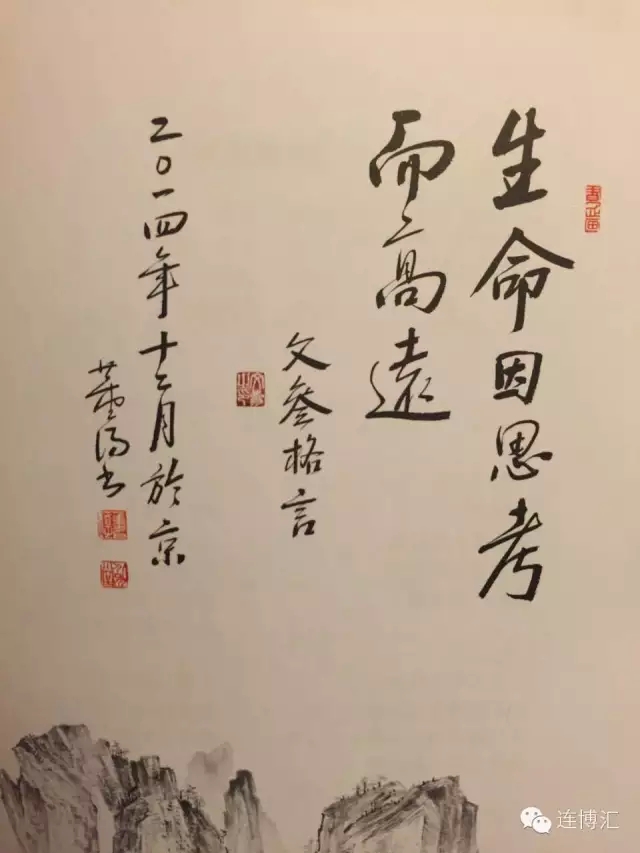 生命因思考
而高遠
文叁格言
二〇一四年十二月於京
董陽书
连博汇